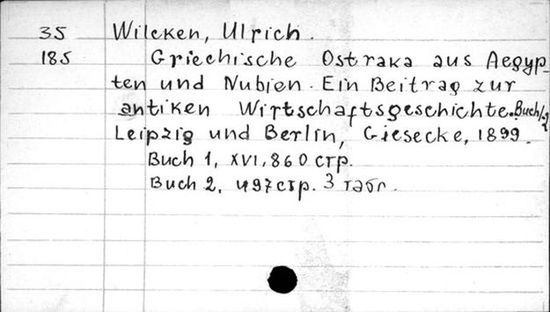 35 Wilcken, Ulrich.
185 Griechische Ostraka aus Aegyp-
ten und Nubien. Ein Beitrag zur
antiken Wirtschaftsgeschichte. Buch 1,2
Leipzig und Berlin, Giesecke, 1899.
Buch 1, XVI, 860 стр.
Buch 2, 497 стр. 3 табл.